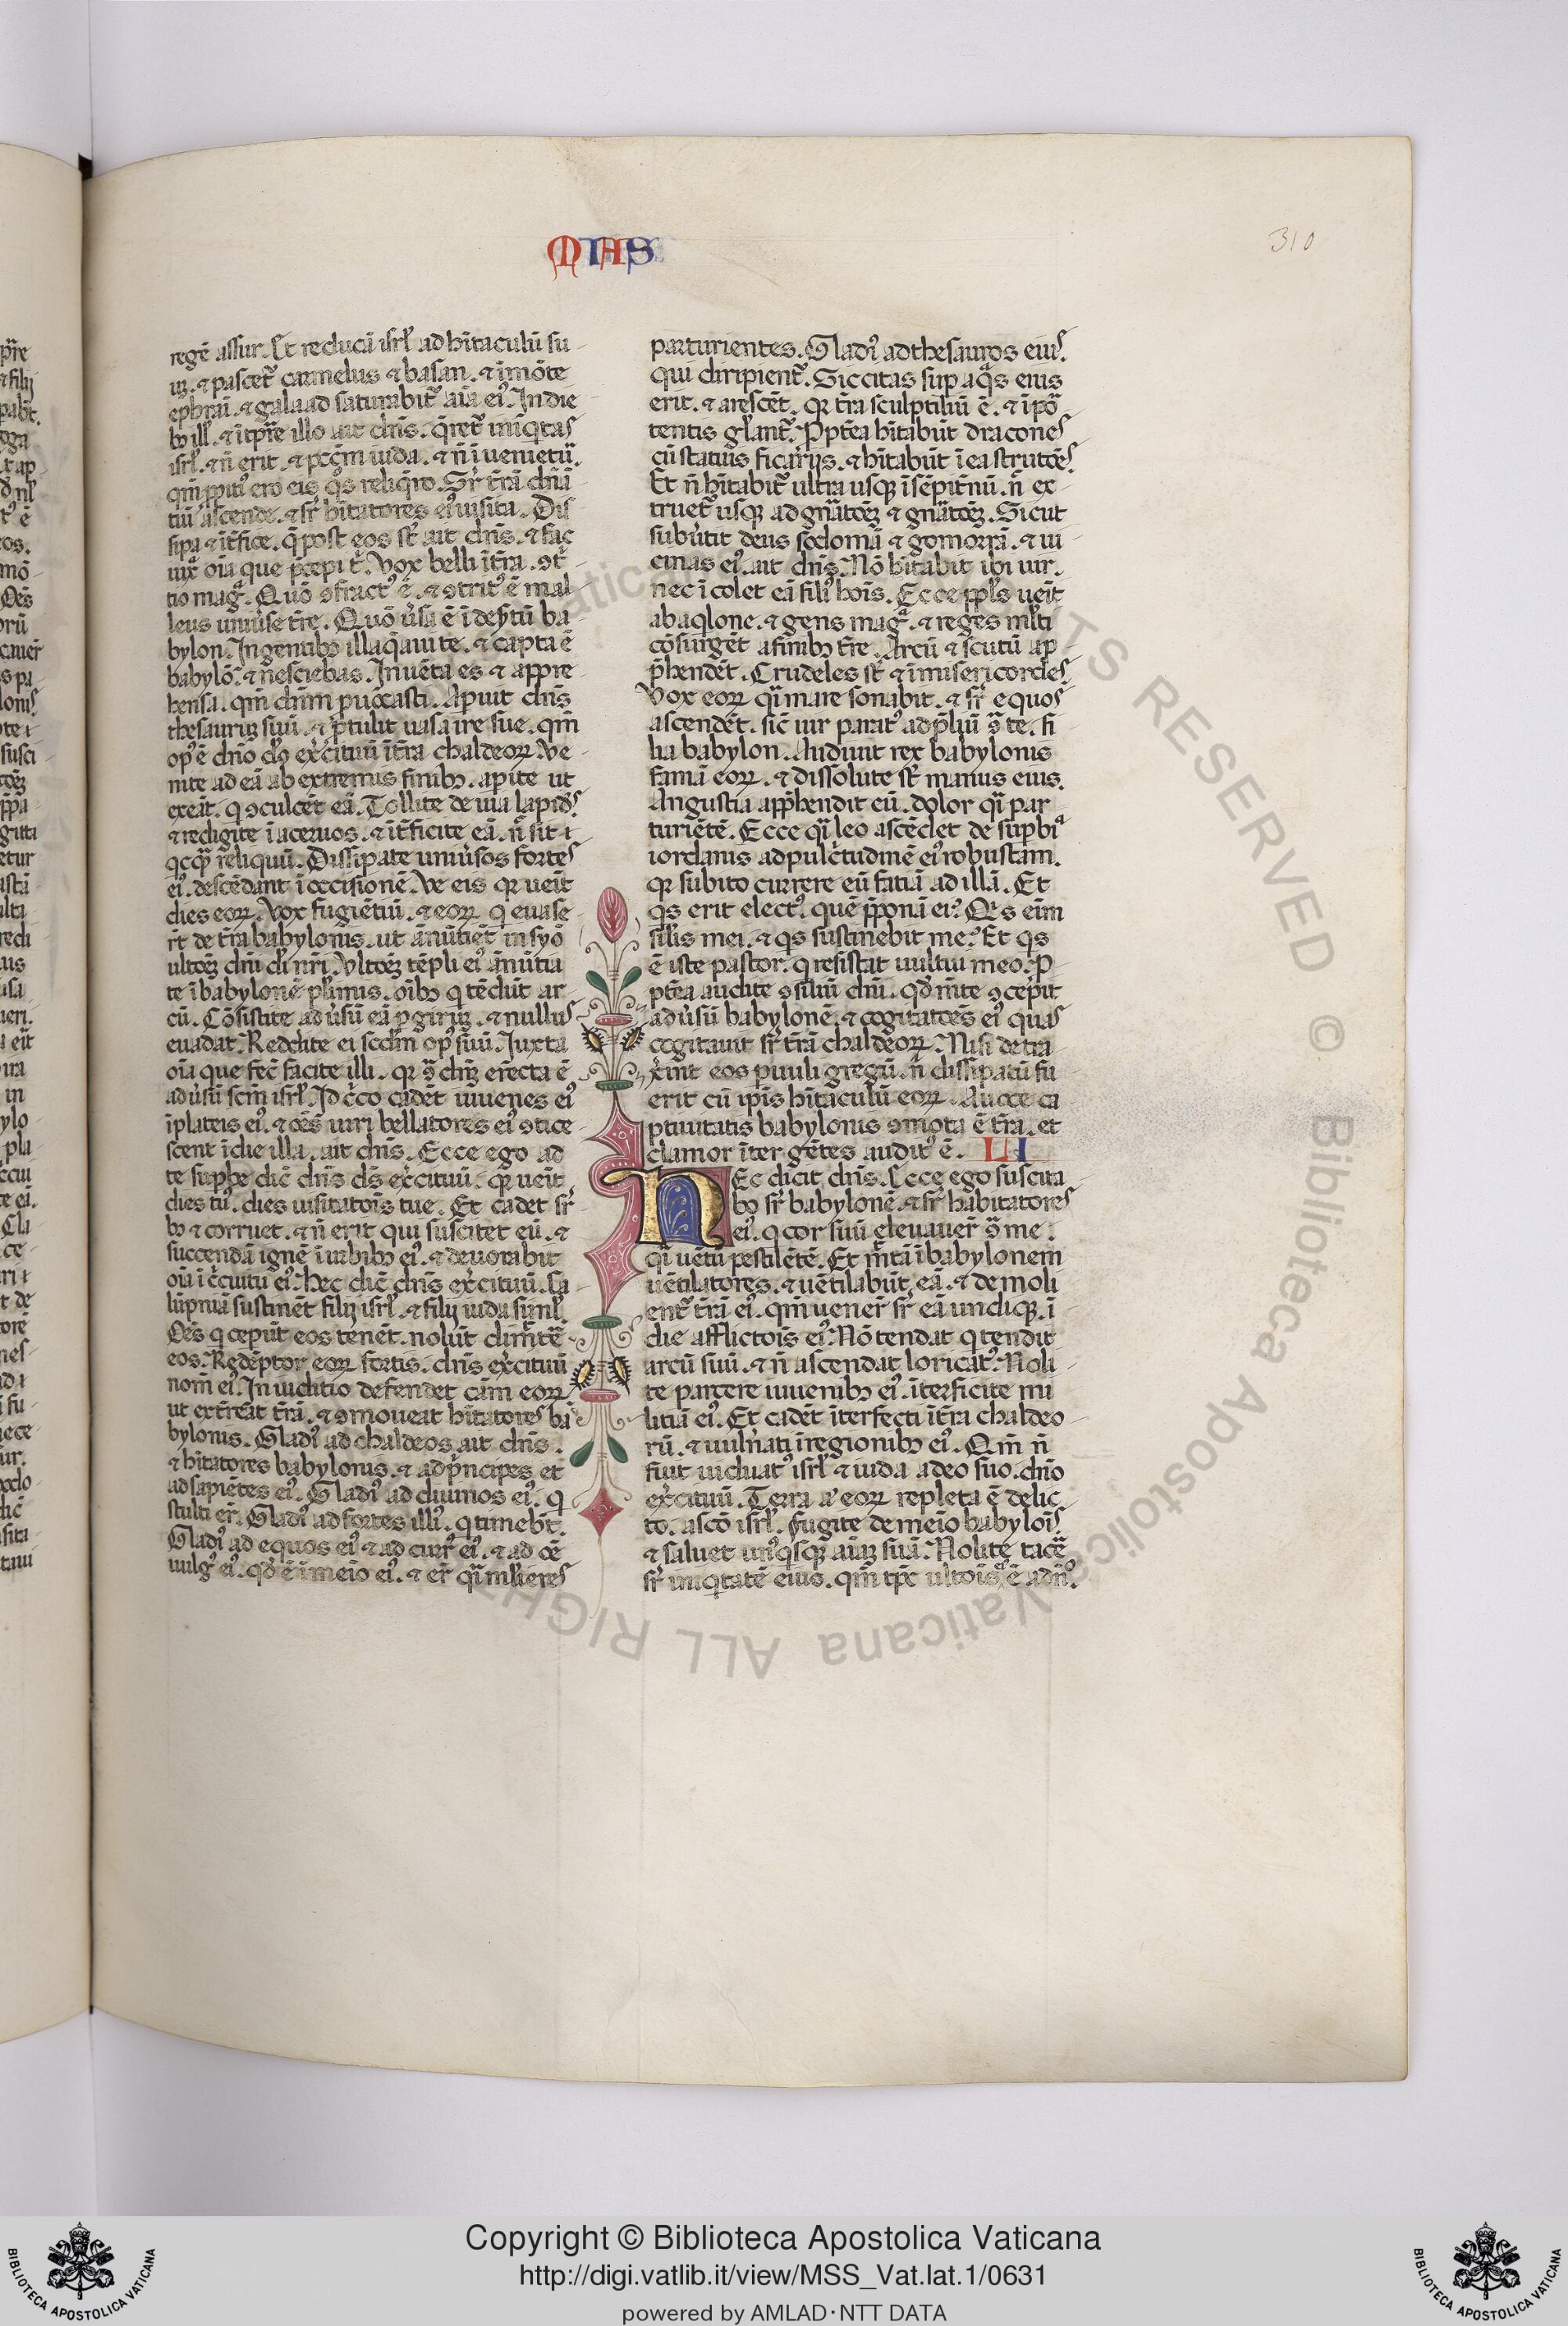 MIAS
310
regē assur. Et reducā isrl' ad hītaculū su
uȝ. ⁊ pascet᷑ carmelus ⁊ basan. ⁊ ī mōte
ephraī. ⁊ galaad saturabit᷑ aīa ei᾿. In die
bȝ ill'. ⁊ ī tp̄re illo ait dn̄s. q̄ret᷑ iniq̇tas
isrl'. ⁊ n̄ erit. ⁊ pctm̄ iuda. ⁊ n̄ īuenietur.
qm̄ ꝓpiti᾿ ero eis q̊s reliq̄ro. Sr̄ t̄rā dn̄ā
tiū ascende. ⁊ sr̄ hītatores ei᾿ uisita. Dis
sipa ⁊ īt̄fice. q̄ post eos st̄ ait dn̄s. ⁊ fac
iux̄ oīa que p̄cepi t'. Vox belli ī t̄ra. ꝯt̄
tio mag̈. Quō ꝯfract᾿ ē. ⁊ ꝯtrit᾿ ē mal
leus uniu̇se t̄re. Quō u̇sa ē ī desʼtū ba
bylon. In gentibȝ illaq̄aui te. ⁊ capta ē
babylō. ⁊ nesciebas. Inuēta es ⁊ appre
hensa. qm̄ dn̄m puocasti. Apuit dn̄s
thesauruȝ suū. ⁊ p̄tulit uasa ire sue. qm̄
op᾿ ē dn̄o do exc̓ituū ī t̄ra chaldeoꝝ. Ve
nite ad eā ab extremis finibȝ. apite ut
exeāt. q̇ ꝯculcēt eā. Tollite de uia lapid᾿.
⁊ redigite ī aceruos. ⁊ īt̄ficite eā. n̄ sit ⁊
qcq̄ reliquū. Dissipate uniu̇sos fortes
ei᾿. descēdant ī occisionē. Ve eis qr ueīt
dies eoꝝ. Vox fugiētiū. ⁊ eoꝝ q̇ euase
rt̄ de t̄ra babylonis. ut ānūtiēt in syō
ultōeȝ dn̄i di nr̄i. Vltōeȝ tēpli ei᾿ ānūtia
te ī babylonē plimis. oībȝ q̇ tēdūt ar
cū. Cōsistite adu̇sū eā p giruȝ. ⁊ nullus
euadat. Reddite ei scd̄m op᾿ suū. Juxta
oīa que fec̄ facite illi. qr ꝯ̄ dn̄ȝ erecta ē
adu̇sū scm̄ isrl'. Idc̓co cadēt iuuenes ei᾿
ī plateis ei᾿. ⁊ oēs uiri bellatores ei᾿ ꝯtice
scent ī die illa. ait dn̄s. Ecce ego ad
te supbe dic̄ dn̄s ds̄ exc̓ituū. qr ueīt
dies tu᾿. dies uisitatōis tue. Et cadet sr̄
bȝ ⁊ corruet. ⁊ n̄ erit qui suscitet eū. ⁊
succendā ignē ī urbibȝ ei᾿. ⁊ deuorabit
oīa ī c̓cuitu ei᾿. Hec dic̄ dn̄s exc̓ituū. Ca
lūpniā sustinēt filij isrl'. ⁊ filij iuda simł'.
Oēs q̇ cepūt eos tenēt. nolūt dimit̄tē
eos. Redēptor eoꝝ fortis. dn̄s exc̓ituū
nom̄ ei᾿. In iuditio defendet cām eoꝝ
ut ext̄reāt t̄rā. ⁊ ꝯmoueat hītatores ba
bylonis. Gladi᾿ ad chaldeos ait dn̄s.
⁊ hītatores babylonis. ⁊ ad p̓ncipes et
ad sapiētes ei᾿. Gladi᾿ ad diuinos ei᾿. q̇
stulti er̄t. Gladi᾿ ad fortes illi᾿. q̇ timebūt.
Gladi᾿ ad equos ei᾿ ⁊ ad curr᾿ ei᾿. ⁊ ad oē
uulg᾿ ei᾿. qd̄ ē ī meīo ei᾿. ⁊ er̄t q̄i mulieres
parturientes. Gladi᾿ ad thesauros eius.
qui diripient᷑. Siccitas sup aq̈s eius
erit. ⁊ arescēt. qr t̄ra sculptiliū ē. ⁊ ī pō
tentis gl'ant᷑. Ꝓpt̄ea hītabūt dracones
cū statuis ficarijs. ⁊ hītabūt ī ea strutōes.
Et n̄ hītabit᷑ ultra usqȝ ī sēpit̄nū. n̄ ex
truet᷑ usqȝ ad gn̄atōeȝ ⁊ gn̄atōeȝ. Sicut
subu̇tit deus sodomā ⁊ gomorrā. ⁊ ui
cinas ei᾿. ait dn̄s. Nō hītabit ibi uir.
nec īcolet eā fili᾿ hoīs. Ecce ppl̄s ueīt
ab aqlone. ⁊ gens mag̈. ⁊ reges ml̄ti
cōsurgēt a finibȝ t̄re. Arcū ⁊ scutū ap
p̄hendēt. Crudeles st̄ ⁊ īmisericordes.
Vox eoꝝ q̄i mare sonabit. ⁊ sr̄ equos
ascendēt. sic̄ uir parat᾿ ad p̄liū ꝯ̄ te. fi
lia babylon. Audiuit rex babylonis
famā eoꝝ. ⁊ dissolute st̄ manus eius.
Angustia app̄hendit eū. dolor q̄i par
turiētē. Ecce q̄i leo ascēdet de supbia
iordanis ad pulc̓tudinē ei᾿ robustam.
qr subito currere eū fatiā ad illā. Et
q̇s erit elect᾿. quē p̄ponā ei? Q̇s eīm
sil̄is mei. ⁊ q̇s sustinebit me? Et q̇s
ē iste pastor. q̇ resistat uultui meo. Ꝓ
pt̄ea audite ꝯsiliū dn̄i. qd̄ mte ꝯcepit
adu̇sū babylonē. ⁊ cogitatōes ei᾿ quas
cogitauit sr̄ t̄rā chaldeoꝝ. Nisi detra
xerint eos puuli gregū. n̄ dissipatū fu
erit cū ip̄is hītaculū eoꝝ. A uoce ca
ptiuitatis babylonis ꝯmota ē t̄ra. et
clamor īter gētes audit᾿ ē. LI
hEc dicit dn̄s. Ecce ego suscita
bo sr̄ babylonē. ⁊ sr̄ habitatores
ei᾿. q̇ cor suū eleuauer̄t ꝯ̄ me
q̄i uētū pestilētē. Et mt̄tā ī babylonem
uētilatores. ⁊ uētilabūt eā. ⁊ demoli
ent᷑ t̄rā ei᾿. qm̄ uener̄t sr̄ eā undiqȝ. ī
die afflictōis ei᾿. Nō tendat q̇ tendit
arcū suū. ⁊ n̄ ascendat loricat᾿. Noli
te parcere iuuenibȝ ei᾿. īterficite mi
litiā ei᾿. Et cadēt īterfecti ī t̄ra chaldeo
rū. ⁊ uuln̄ati ī regionibȝ ei᾿. Qm̄ n̄
fuit uiduat᾿ isrl' ⁊ iuda a deo suo. dn̄o
exc̓ituū. Terra a᾿ eoꝝ repleta ē delic
to. a sc̄o isrl'. Fugite de meīo babylōis
⁊ saluet un᾿qsqȝ aīaȝ suā. Nolite tacē
sr̄ iniq̇tatē eius. qm̄ tp̄s ultōis ē a dn̄o.
Copyright © Biblioteca Apostolica Vaticana
http://digi.vatlib.it/view/MSS_Vat.lat.1/0631
powered by AMLAD·NTT DATA
BIBLIOTECA APOSTOLICA VATICANA
BIBLIOTECA APOSTOLICA VATICANA